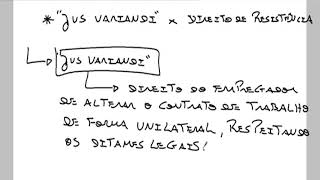 * "JUS VARIANDI" x DIREITO DE RESISTÊNCIA
"JUS VARIANDI"
DIREITO DO EMPREGADOR
DE ALTERAR O CONTRATO DE TRABALHO
DE FORMA UNILATERAL, RESPEITANDO
OS DITAMES LEGAIS!